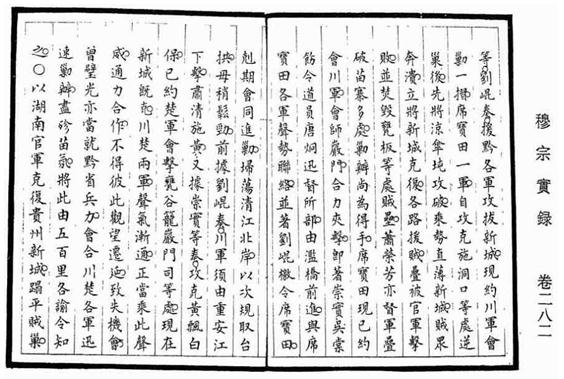 穆宗實錄 卷二八二
等劉崐奏援黔各軍攻拔新城現約川軍會
勦一摺席寶田一軍自攻克施洞口等處逆
巢後先將涼傘垞攻破乘勢直薄新城賊眾
奔潰立將新城克復各路援賊疊被官軍擊
敗並焚毀甕板等處賊壘蕭榮芳亦督軍疊
破苗寨多處勦辦尚為得手席寶田現已約
會川軍會師嚴門合力夾擊即著崇實吳棠
飭令道員唐炯迅督所部由濫橋前進與席
寶田各軍聲勢聯絡並著劉崐檄令席寶田
剋期會同進勦掃蕩清江北岸以次規取台
拱毋稍鬆勁前據劉崐奏川軍須由重安江
下擊肅清施黃又據崇實等奏攻克黃飄白
保已約楚軍會擊甕谷籠嚴門司等處現在
新城既克川楚兩軍聲氣漸通正當乘此聲
威通力合作不得彼此觀望遷延致失機會
曾璧光亦當就黔省兵力會合川楚各軍迅
速勦辦盡殄苗氛將此由五百里各諭令知
之○以湖南官軍克復貴州新城蹋平賊巢